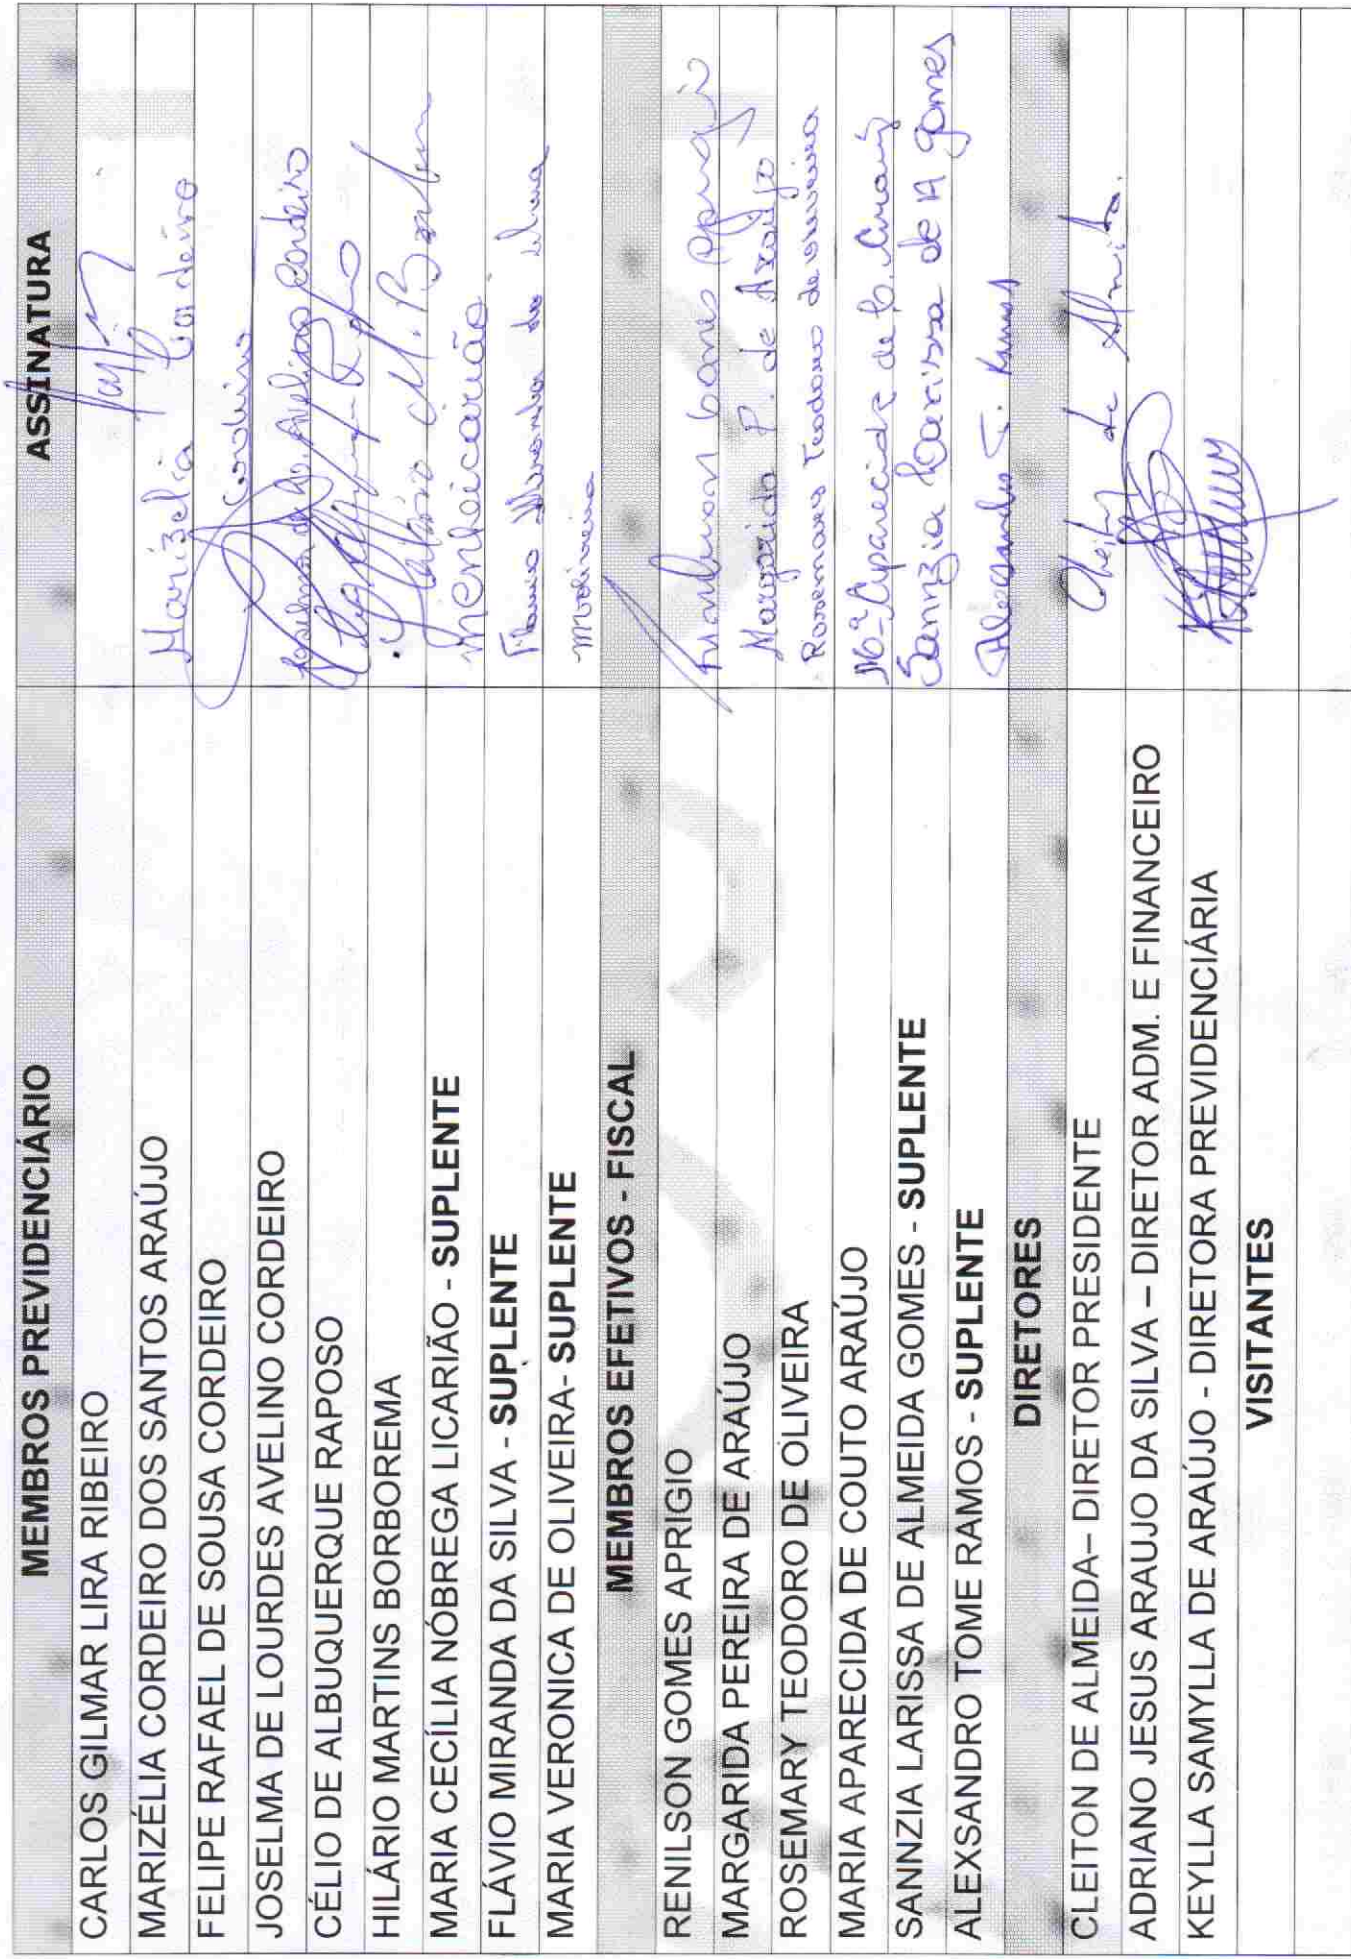 MEMBROS PREVIDENCIÁRIO ASSINATURA
CARLOS GILMAR LIRA RIBEIRO
MARIZÉLIA CORDEIRO DOS SANTOS ARAÚJO Marizelia Cordeiro
FELIPE RAFAEL DE SOUSA CORDEIRO Cordeiro
JOSELMA DE LOURDES AVELINO CORDEIRO Joselma de Lo. Avelino Cordeiro
CÉLIO DE ALBUQUERQUE RAPOSO
HILÁRIO MARTINS BORBOREMA Hilário M. Borborema
MARIA CECÍLIA NÓBREGA LICARIÃO - SUPLENTE
FLÁVIO MIRANDA DA SILVA - SUPLENTE Flavio Miranda da Silva
MARIA VERONICA DE OLIVEIRA- SUPLENTE
MEMBROS EFETIVOS - FISCAL
RENILSON GOMES APRIGIO Gomes Aprigio
MARGARIDA PEREIRA DE ARAÚJO Margarida P. de Araújo
ROSEMARY TEODORO DE OLIVEIRA Rosemary Teodoro de Oliveira
MARIA APARECIDA DE COUTO ARAÚJO Mª Aparecida de C. Araújo
SANNZIA LARISSA DE ALMEIDA GOMES - SUPLENTE Sannzia Larissa de A Gomes
ALEXSANDRO TOME RAMOS - SUPLENTE Alexsandro T. Ramos
DIRETORES
CLEITON DE ALMEIDA– DIRETOR PRESIDENTE Cleiton de Almeida.
ADRIANO JESUS ARAUJO DA SILVA – DIRETOR ADM. E FINANCEIRO
KEYLLA SAMYLLA DE ARAÚJO - DIRETORA PREVIDENCIÁRIA
VISITANTES